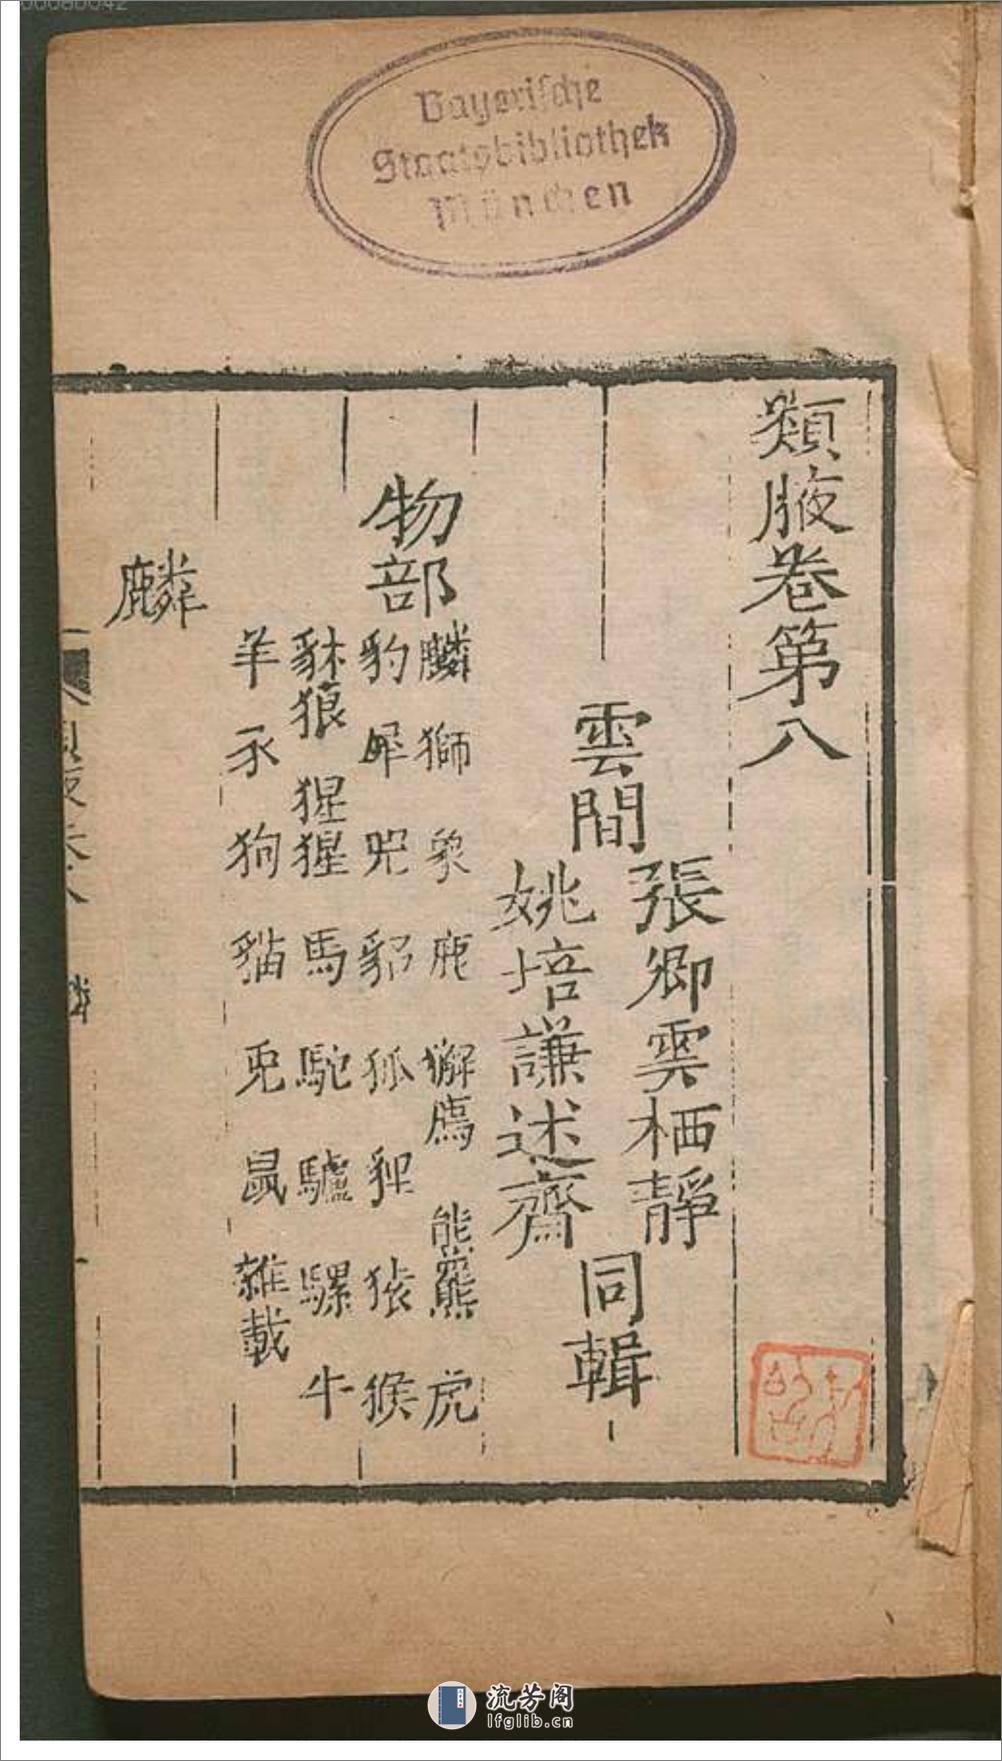 00080042
Bayerische
Staatsbibliothek
München
類腋卷第八
雲間
張卿雲栖靜
姚培謙述齋
同輯
物部
麟 獅 象 鹿 獬廌 熊羆 虎
豹 犀 兕 貂 狐 貍 猿 猴
豺狼 猩猩 馬 駝 驢 騾 牛
羊 豕 狗 貓 兎 鼠 雜載
麟
流芳阁
lfglib.cn